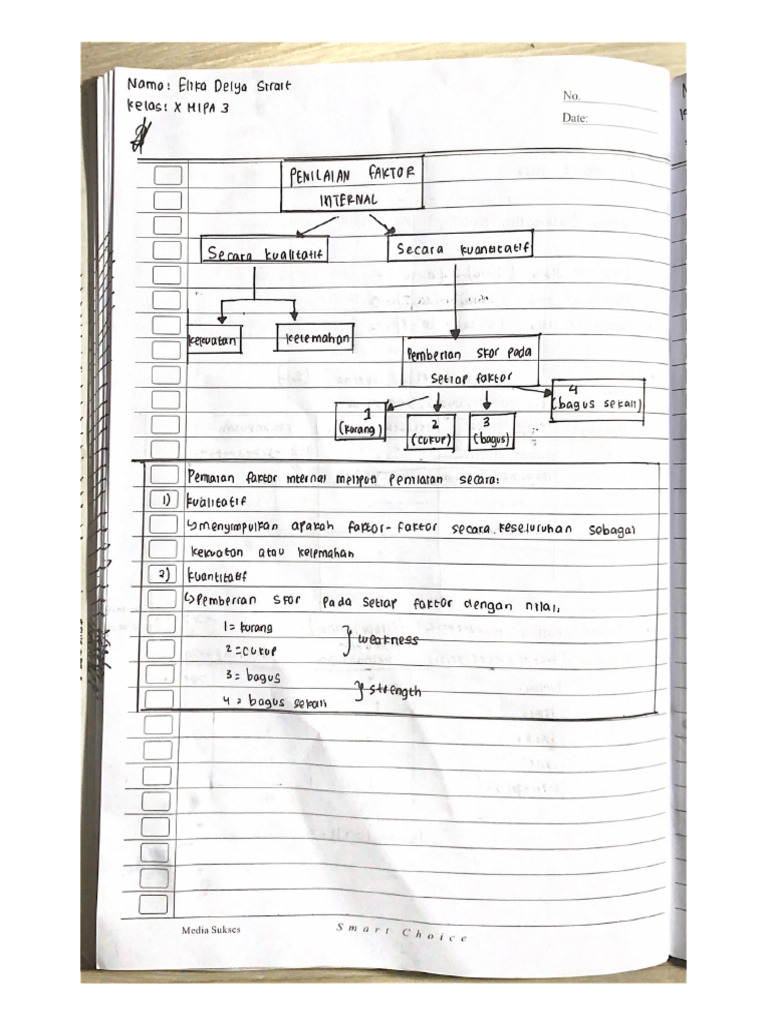 Nama: Elika Delya Sirait
Kelas: X MIPA 3
No.
Date:
PENILAIAN FAKTOR
INTERNAL
Secara kualitatif
Secara kuantitatif
kekuatan
kelemahan
Pemberian skor pada
setiap faktor
1
(kurang)
2
(cukup)
3
(bagus)
4
(bagus sekali)
Penilaian faktor internal meliputi penilaian secara:
1) kualitatif
↳ menyimpulkan apakah faktor-faktor secara keseluruhan sebagai
kekuatan atau kelemahan
2) kuantitatif
↳ Pemberian skor pada setiap faktor dengan nilai,
1 = kurang
2 = cukup
} weakness
3 = bagus
4 = bagus sekali
} strength
Media Sukses
Smart Choice